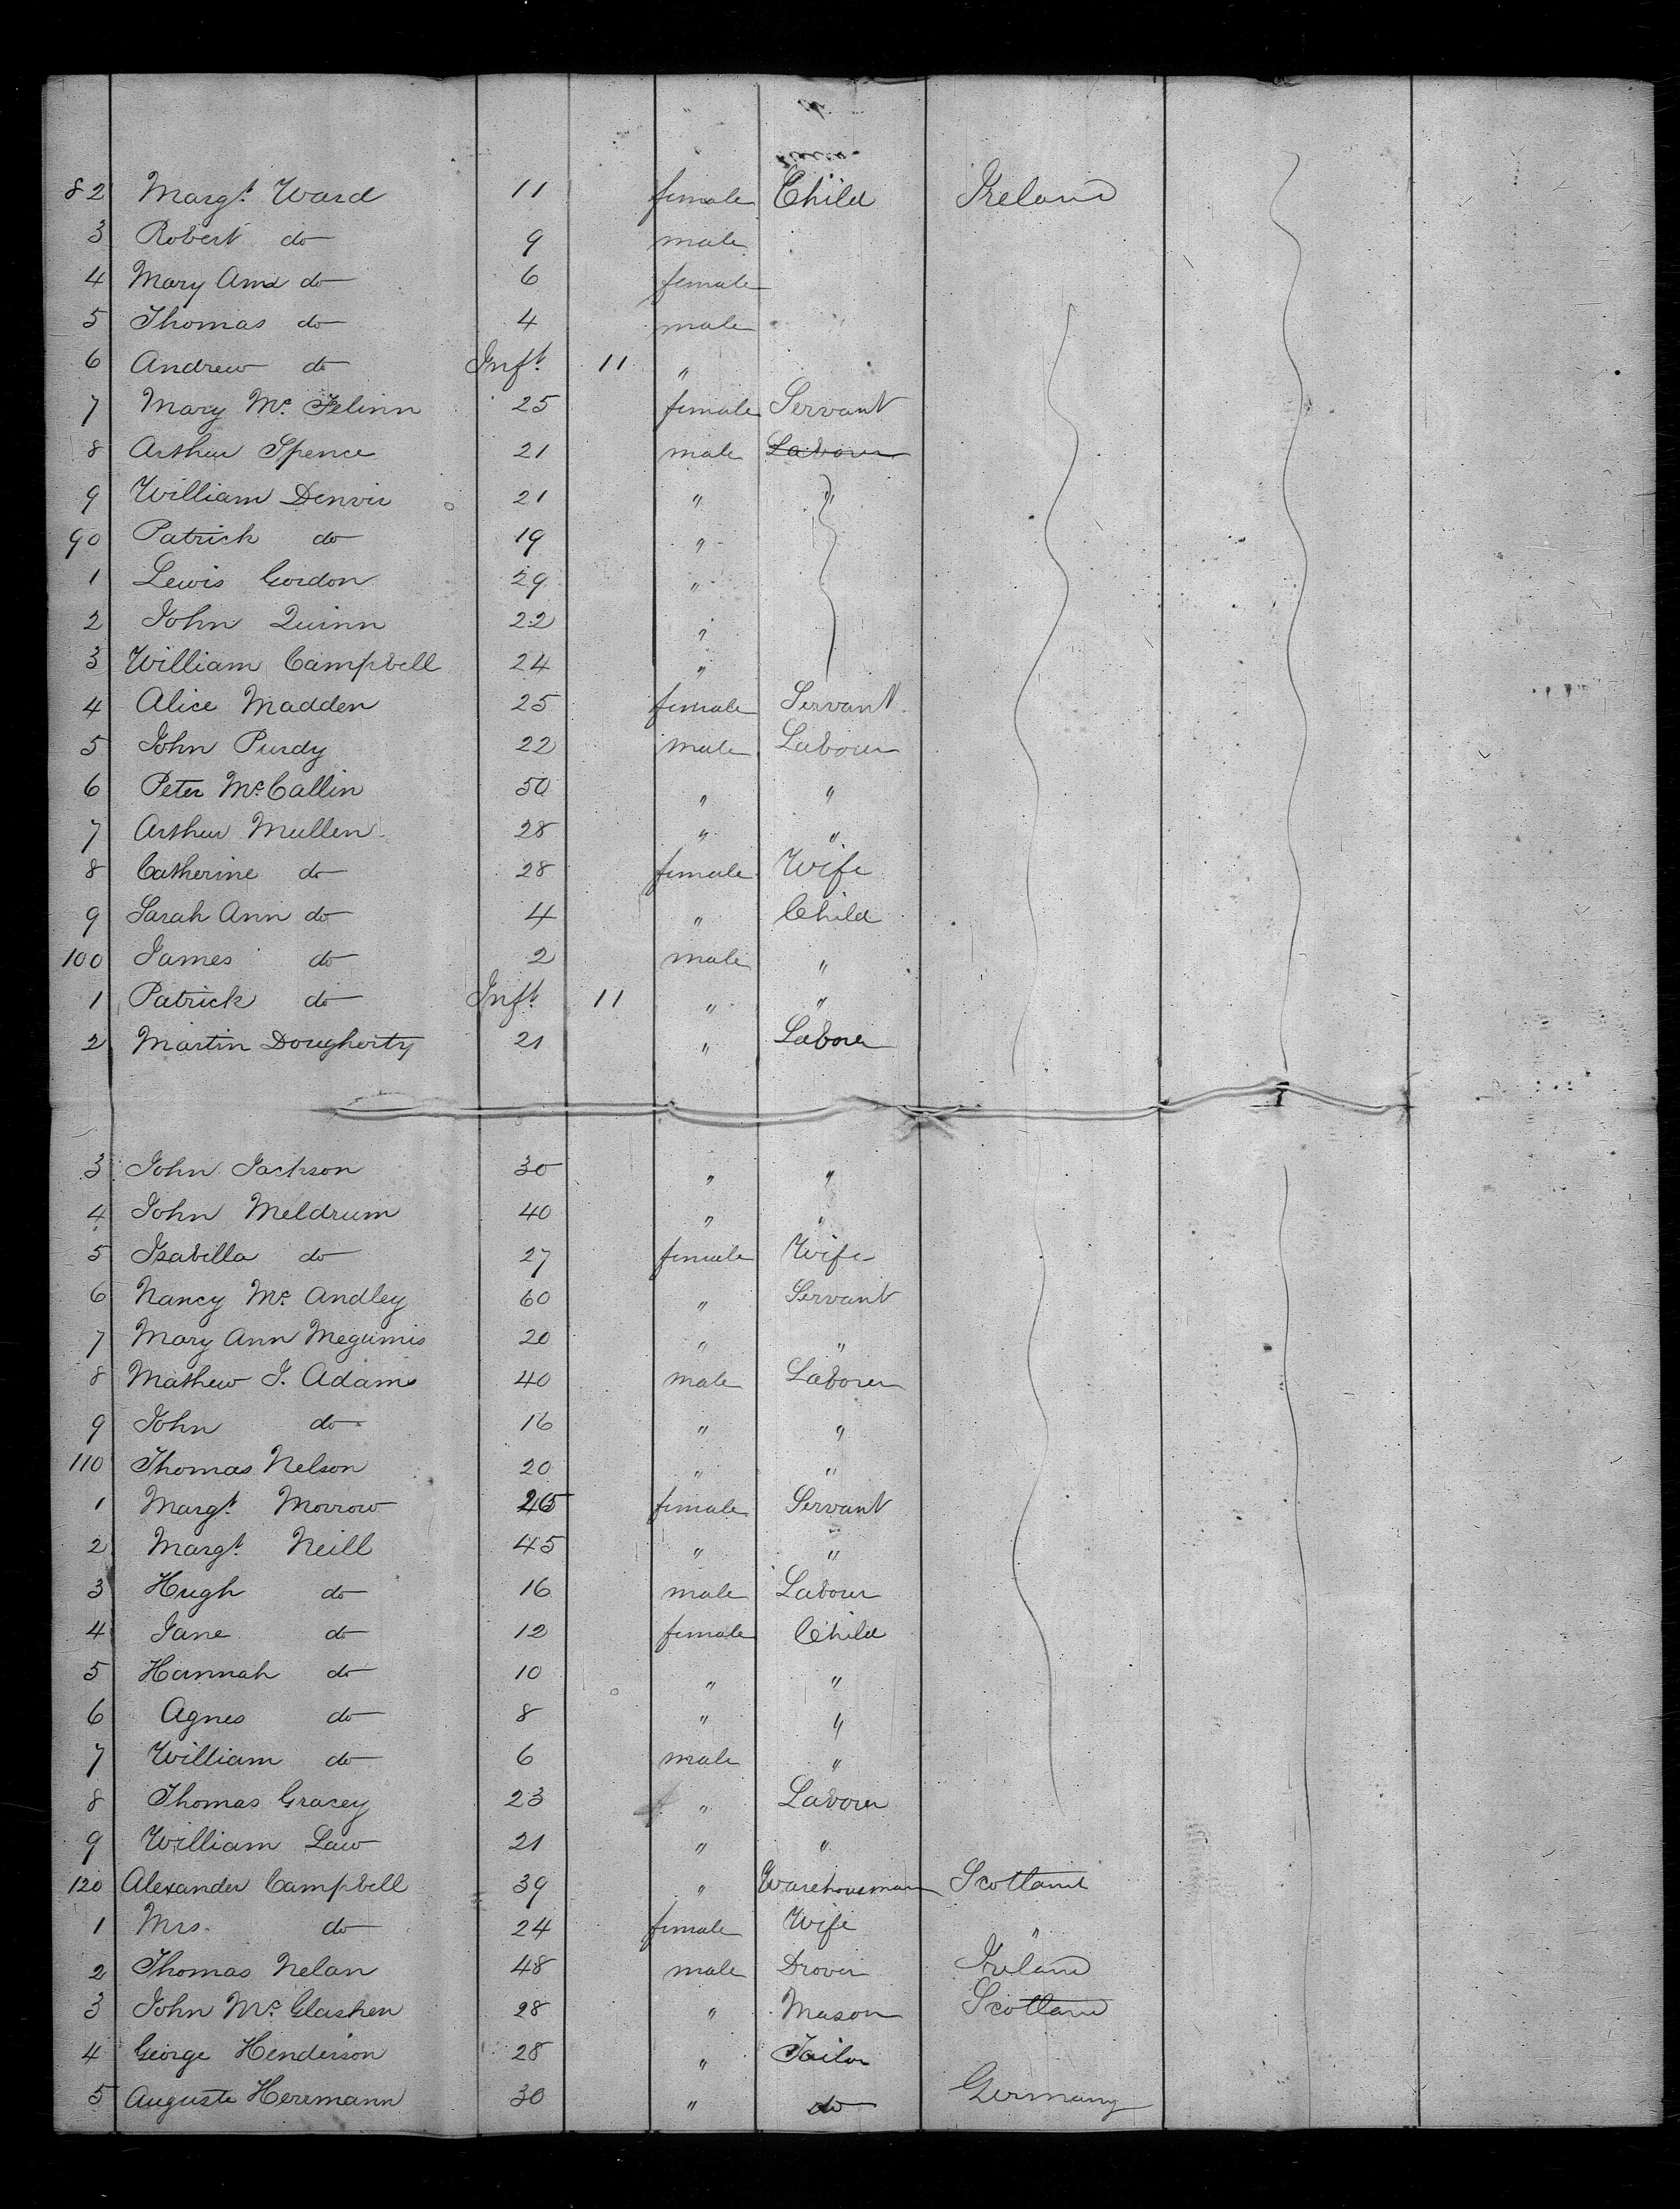 82 Margt. Ward 11 female Child Ireland
3 Robert do 9 male
4 Mary Ann do 6 female
5 Thomas do 4 male
6 Andrew do Inft. 11 "
7 Mary Mc. 25 female Servant
8 Arthur Spence 21 male Labourer
9 William Denvir 21 " "
90 Patrick do 19 "
1 Lewis Gordon 29 "
2 John Quinn 22 "
3 William Campbell 24 "
4 Alice Madden 25 female Servant
5 John Purdy 22 male Labourer
6 Peter McCallin 50 " "
7 Arthur Mullen 28 " "
8 Catherine do 28 female Wife
9 Sarah Ann do 4 " Child
100 James do 2 male "
1 Patrick do Inft. 11 " "
2 Martin Dougherty 21 " Laborer
3 John Jackson 30 " "
4 John Meldrum 40 " "
5 Isabella do 27 female Wife
6 Nancy Mc. Andley 60 " Servant
7 Mary Ann 20 " "
8 Mathew J. Adams 40 male Laborer
9 John do 16 " "
110 Thomas Nelson 20 " "
1 Margt. Morrow female Servant
2 Margt. Neill 45 " "
3 Hugh do 16 male Labourer
4 Jane do 12 female Child
5 Hannah do 10 " "
6 Agnes do 8 " "
7 William do 6 male "
8 Thomas Gracey 23 " Labourer
9 William Law 21 " "
120 Alexander Campbell 39 " Warehouseman Scotland
1 Mrs. do 24 female Wife "
2 Thomas Nelan 48 male Drover Ireland
3 John Mc. Glashen 28 " Mason Scotland
4 George Henderson 28 " Tailor
5 Auguste Herrmann 30 " do Germany